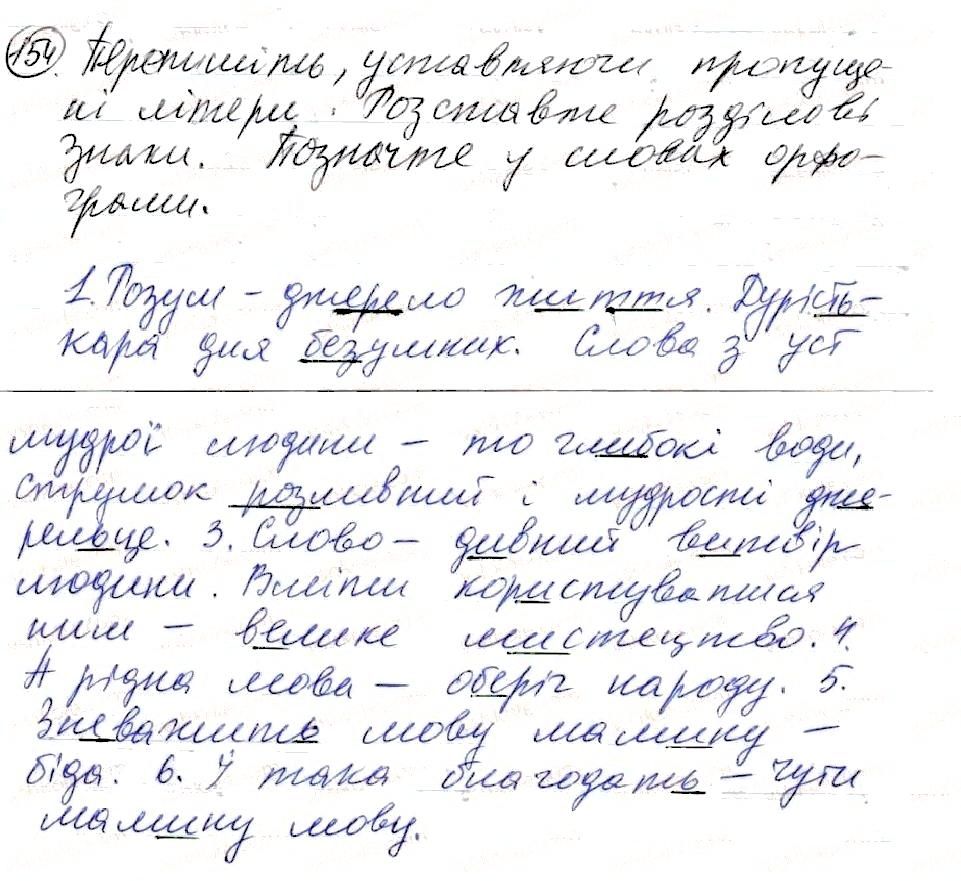 154. Перепишіть, уставляючи пропуще-
ні літери. Розставте розділові
знаки. Позначте у словах орфо-
грами.
1. Розум - джерело життя. Дурість-
кара для безумних. Слова з уст
мудрої людини - то глибокі води,
струмок розливший і мудрості дже-
рельце. 3. Слово - дивний витвір
людини. Вміти користуватися
ним - велике мистецтво. 4.
А рідна мова - оберіг народу. 5.
Зневажить мову мамину -
біда. 6. Й така благодать - чути
мамину мову.